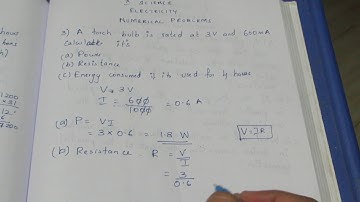 SCIENCE
ELECTRICITY
NUMERICAL PROBLEMS
3) A torch bulb is rated at 3V and 600mA
Calculate it's
(a) Power
(b) Resistance
(c) Energy consumed if it used for 4 hours
V = 3V
I = 600/1000 = 0.6 A
(a) P = VI
= 3 × 0.6 = 1.8 W
V=IR
(b) Resistance R = V/I
= 3/0.6